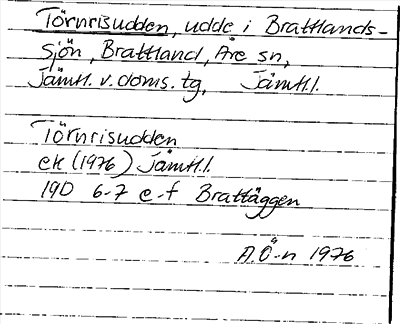 Törnrisudden, udde i Brattlands-
sjön, Brattland, Åre sn,
Jämtl. v. doms. tg, Jämtl.l.
Törnrisudden
ek (1976) Jämtl.l.
19D 6-7 e-f Brattäggen
A.Ö-n 1976